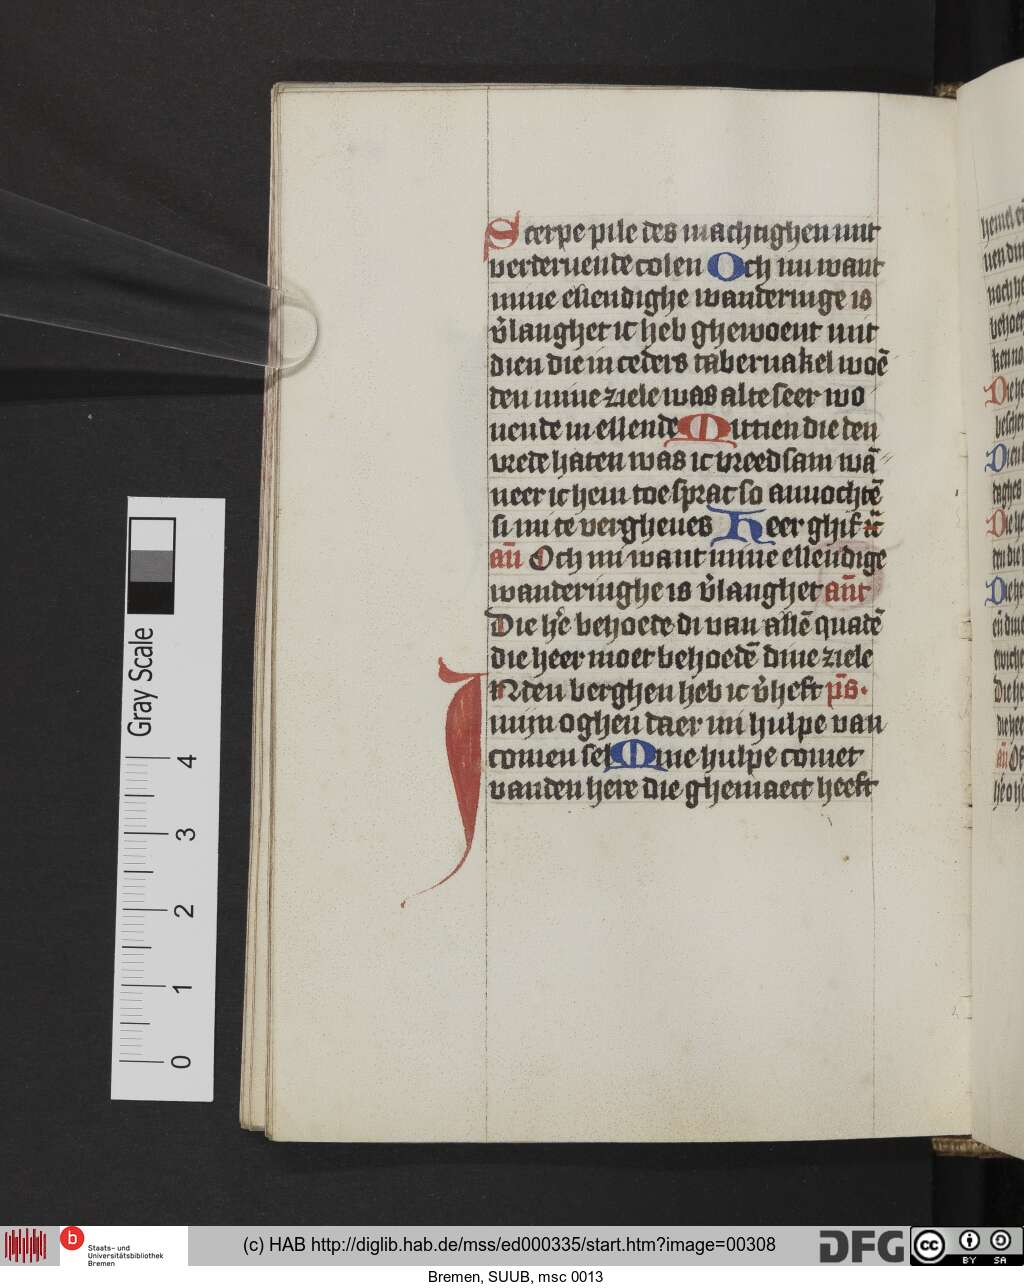 Scerpe pile des machtighen mit
verderuende colen Och mi want
mine ellendighe wanderinge is
v̄langhet ic heb ghewoent mit
dien die in ceders tabernakel woē
den mine ziele was alte seer wo
nende in ellende Mittien die den
vrede haten was ic vreedsam wā
neer ic hem toe sprac so anuochtē
si mi te vergheues Heer ghif
an̄ Och mi want mine ellendige
wanderinghe is v̄langhet an̄t
Die hē behoede di van allē quadē
die heer moet behoedē dine ziele
INden berghen heb ic v̄heft p̄s.
mijn oghen daer mi hulpe van
comen sel Mine hulpe comet
vanden here die ghemaect heeft
Gray Scale
4
3
2
1
0
b
Staats- und
Universitätsbibliothek
Bremen
(c) HAB http://diglib.hab.de/mss/ed000335/start.htm?image=00308
DFG
cc
BY SA
Bremen, SUUB, msc 0013